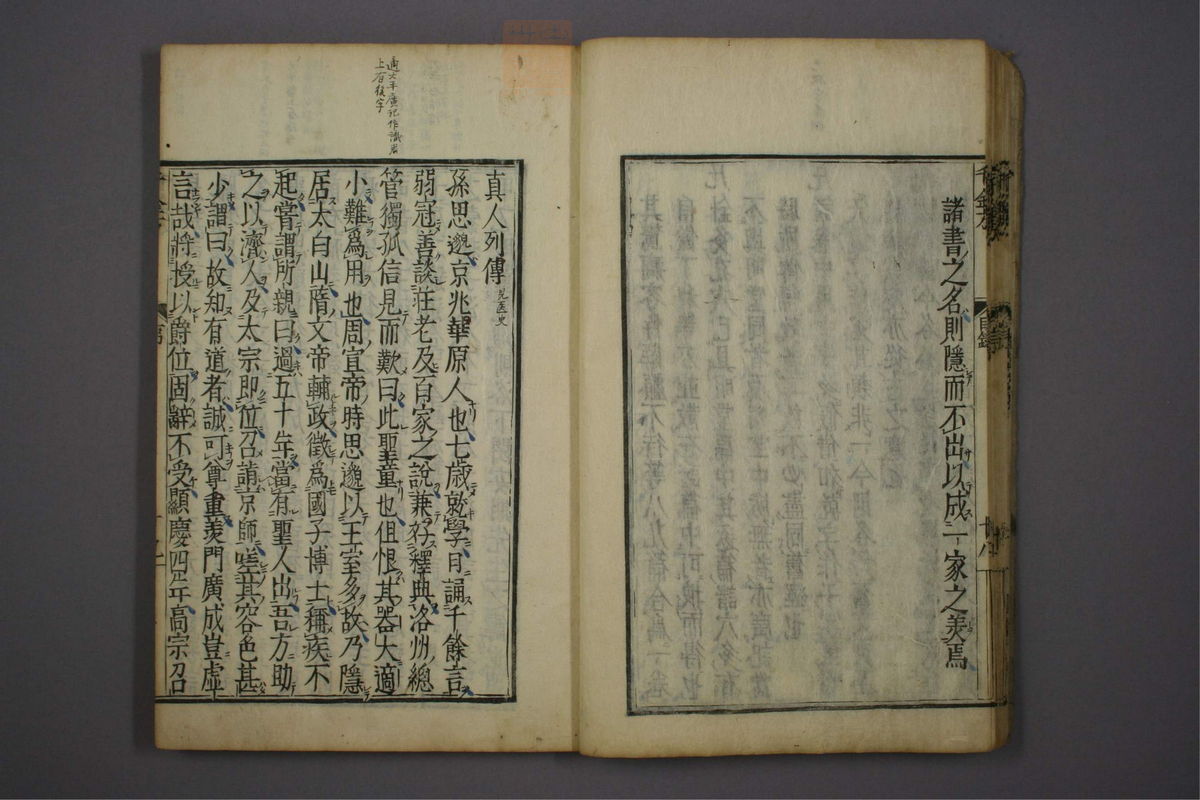 諸書之名則隱而不出以成一家之美焉
目録
十八
真人列傳
孫思邈京兆華原人也七歲就學日誦千餘言
弱冠善談莊老及百家之說兼好釋典洛州總
管獨孤信見而歎曰此聖童也但恨其器大適
小難爲用也周宣帝時思邈以王室多故乃隱
居太白山隋文帝輔政徵爲國子博士稱疾不
起嘗謂所親曰過五十年當有聖人出吾方助
之以濟人及太宗即位召詣京師嗟其容色甚
少謂曰故知有道者誠可尊重羨門廣成豈虛
言哉將授以爵位固辭不受顯慶四年高宗召